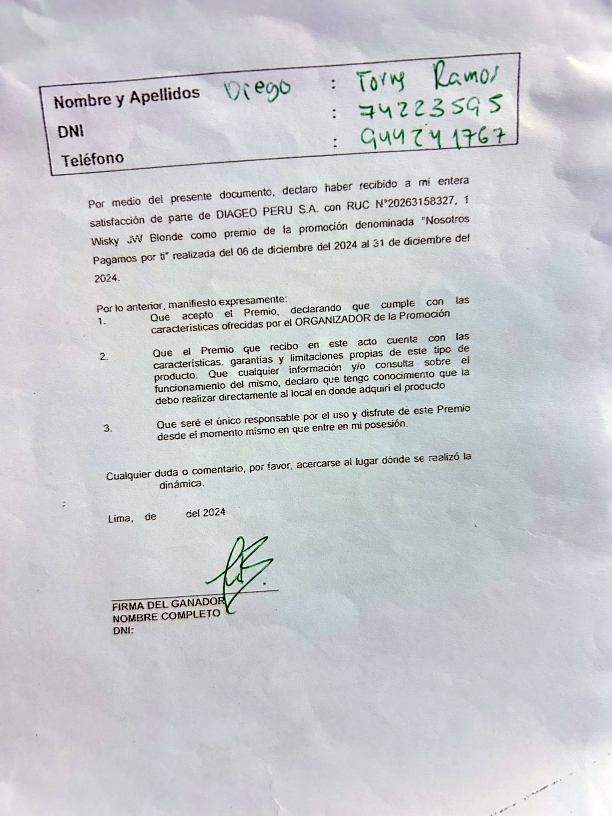 Nombre y Apellidos Diego : Torres Ramos
DNI : 74223595
Teléfono : 944241767
Por medio del presente documento, declaro haber recibido a mi entera
satisfacción de parte de DIAGEO PERU S.A. con RUC N°20263158327, 1
Wisky JW Blonde como premio de la promoción denominada "Nosotros
Pagamos por ti" realizada del 06 de diciembre del 2024 al 31 de diciembre del
2024.
Por lo anterior, manifiesto expresamente:
1. Que acepto el Premio, declarando que cumple con las
características ofrecidas por el ORGANIZADOR de la Promoción
2. Que el Premio que recibo en este acto cuenta con las
características, garantías y limitaciones propias de este tipo de
producto. Que cualquier información y/o consulta sobre el
funcionamiento del mismo, declaro que tengo conocimiento que la
debo realizar directamente al local en donde adquirí el producto
3. Que seré el único responsable por el uso y disfrute de este Premio
desde el momento mismo en que entre en mi posesión.
Cualquier duda o comentario, por favor, acercarse al lugar dónde se realizó la
dinámica.
Lima, de del 2024
FIRMA DEL GANADOR
NOMBRE COMPLETO
DNI: